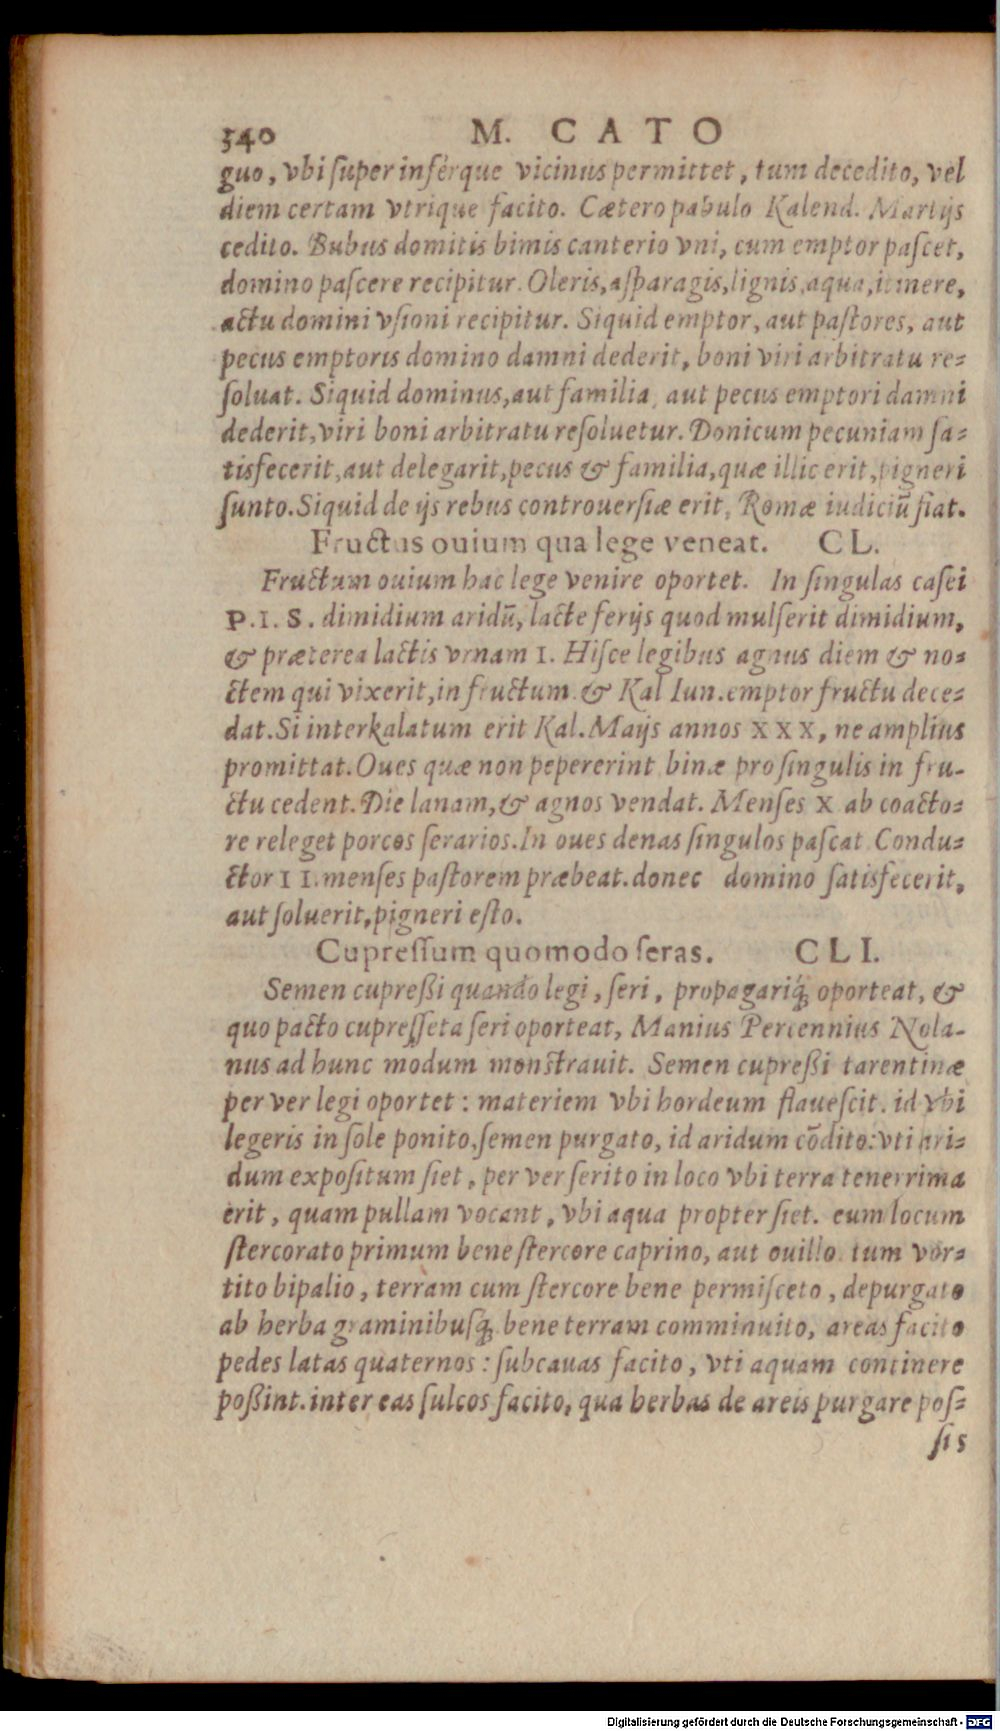 340 M. CATO
guo, vbi super inferque vicinus permittet, tum decedito, vel
diem certam vtrique facito. Cætero pabulo Kalend. Martijs
cedito. Bubus domitis bimis canterio vni, cum emptor pascet,
domino pascere recipitur. Oleris, asparagis, lignis, aqua, itinere,
actu domini vsioni recipitur. Siquid emptor, aut pastores, aut
pecus emptoris domino damni dederit, boni viri arbitratu re-
soluat. Siquid dominus, aut familia, aut pecus emptori damni
dederit, viri boni arbitratu resoluetur. Donicum pecuniam sa-
tisfecerit, aut delegarit, pecus & familia, quæ illic erit, pigneri
sunto. Siquid de ijs rebus controuersiæ erit, Romæ iudiciũ fiat.
Fructus ouium qua lege veneat. CL.
Fructum ouium hac lege venire oportet. In singulas casei
P.I.S. dimidium aridũ, lacte ferijs quod mulserit dimidium,
& præterea lactis vrnam I. Hisce legibus agnus diem & no-
ctem qui vixerit, in fructum. & Kal Iun. emptor fructu dece-
dat. Si interkalatum erit Kal. Maijs annos XXX, ne amplius
promittat. Oues quæ non pepererint binæ pro singulis in fru-
ctu cedent. Die lanam, & agnos vendat. Menses X ab coacto-
re releget porcos serarios. In oues denas singulos pascat Condu-
ctor II. menses pastorem præbeat. donec domino satisfecerit,
aut soluerit, pigneri esto.
Cupressum quomodo seras. CLI.
Semen cupreßi quando legi, seri, propagariq́; oporteat, &
quo pacto cupresseta seri oporteat, Manius Percennius Nola-
nus ad hunc modum monstrauit. Semen cupreßi tarentinæ
per ver legi oportet: materiem vbi hordeum flauescit. id vbi
legeris in sole ponito, semen purgato, id aridum cõdito: vti ari-
dum expositum siet, per ver serito in loco vbi terra tenerrima
erit, quam pullam vocant, vbi aqua propter siet. eum locum
stercorato primum bene stercore caprino, aut ouillo. tum vor-
tito bipalio, terram cum stercore bene permisceto, depurgato
ab herba graminibusq́; bene terram comminuito, areas facito
pedes latas quaternos: subcauas facito, vti aquam continere
poßint. inter eas sulcos facito, qua herbas de areis purgare pos-
sis
Digitalisierung gefördert durch die Deutsche Forschungsgemeinschaft - DFG